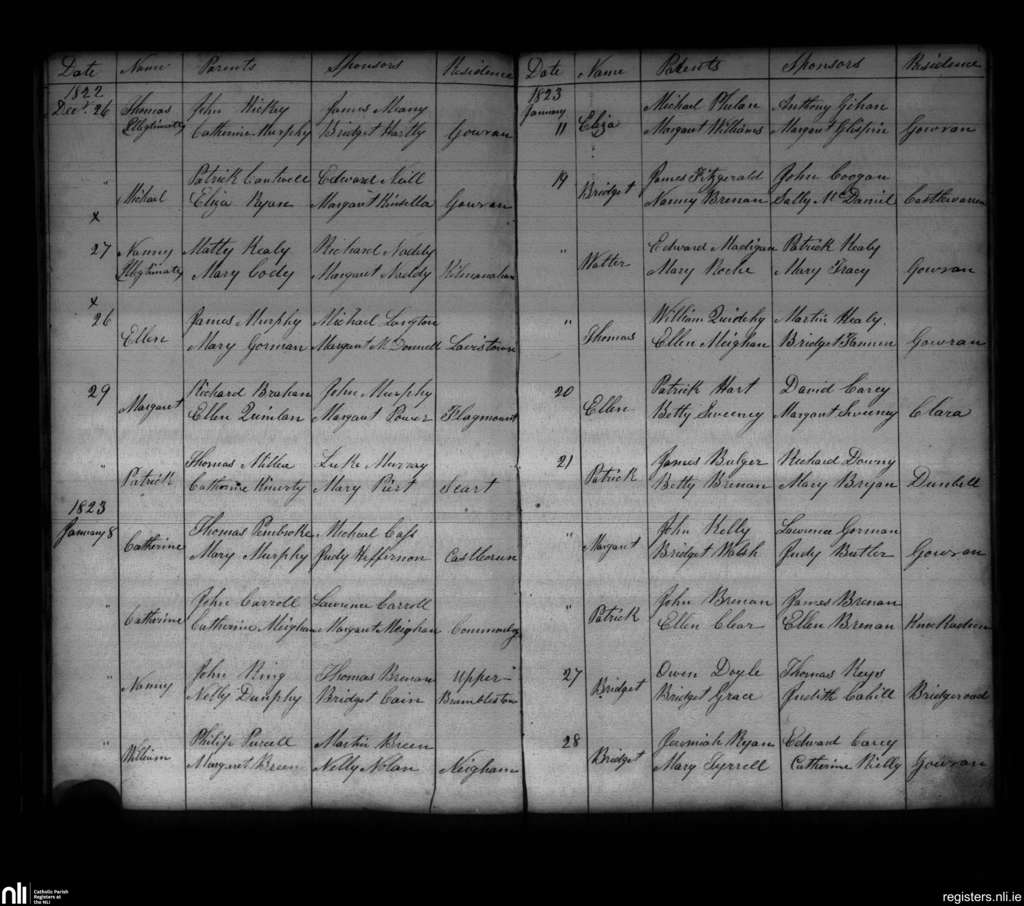 Date Name Parents Sponsors Residence
1822
Decr. 26 Thomas John Hickey James Many
Illegitimate Catherine Murphy Bridget Hartly Gowran
" Patrick Cantwell Edward Neill
Michael Eliza Ryan Margaret Kinsella Gowran
x
27 Nanny Matty Healy Richard Naddy
Illegitimate Mary Cody Margaret Naddy
x
26 James Murphy Michael Langton
Ellen Mary Gorman Margaret McDonnell Lavistown
29 Richard Brahan John Murphy
Margaret Ellen Quinlan Margaret Power Flagmount
" Thomas Millea Luke Murray
Patrick Catherine Mary Piert Scart
1823
January 8 Thomas Pembroke Michael Cass
Catherine Mary Murphy Judy Heffernon Castlecrun
" John Carroll Lawrence Carroll
Catherine Catherine Meighan Margaret Meighan
" John King Thomas Brenan Upper-
Nanny Nelly Dunphy Bridget Cain Brambleston
" Philip Purcell Martin Breen
William Margaret Breen Nelly Nolan Neigham
Date Name Parents Sponsors Residence
1823
January Michael Phelan Anthony Gihan
11 Eliza Margaret Williams Margaret Glispin Gowran
19 James Fitzgerald John Coogan
Bridget Nanny Brenan Sally McDaniel Castlewarren
" Edward Madigan Patrick Healy
Walter Mary Roche Mary Tracy Gowran
" William Martin Healy.
Thomas Ellen Meighan Bridget Gowran
20 Patrick Hart David Carey
Ellen Betty Sweeney Margaret Sweeney Clara
21 James Bulger Richard Downy
Patrick Betty Brenan Mary Bryan Dunbell
" John Kelly Lawrence Gorman
Margaret Bridget Walsh Judy Butler Gowran
" John Brenan James Brenan
Patrick Ellen Clear Ellen Brenan
27 Owen Doyle Thomas Keys
Bridget Bridget Grace Judith Cahill Bridgeroad
28 Jeremiah Ryan Edward Carey
Bridget Mary Tyrrell Catherine Rielly Gowran
nli Catholic Parish
Registers at
the NLI
registers.nli.ie